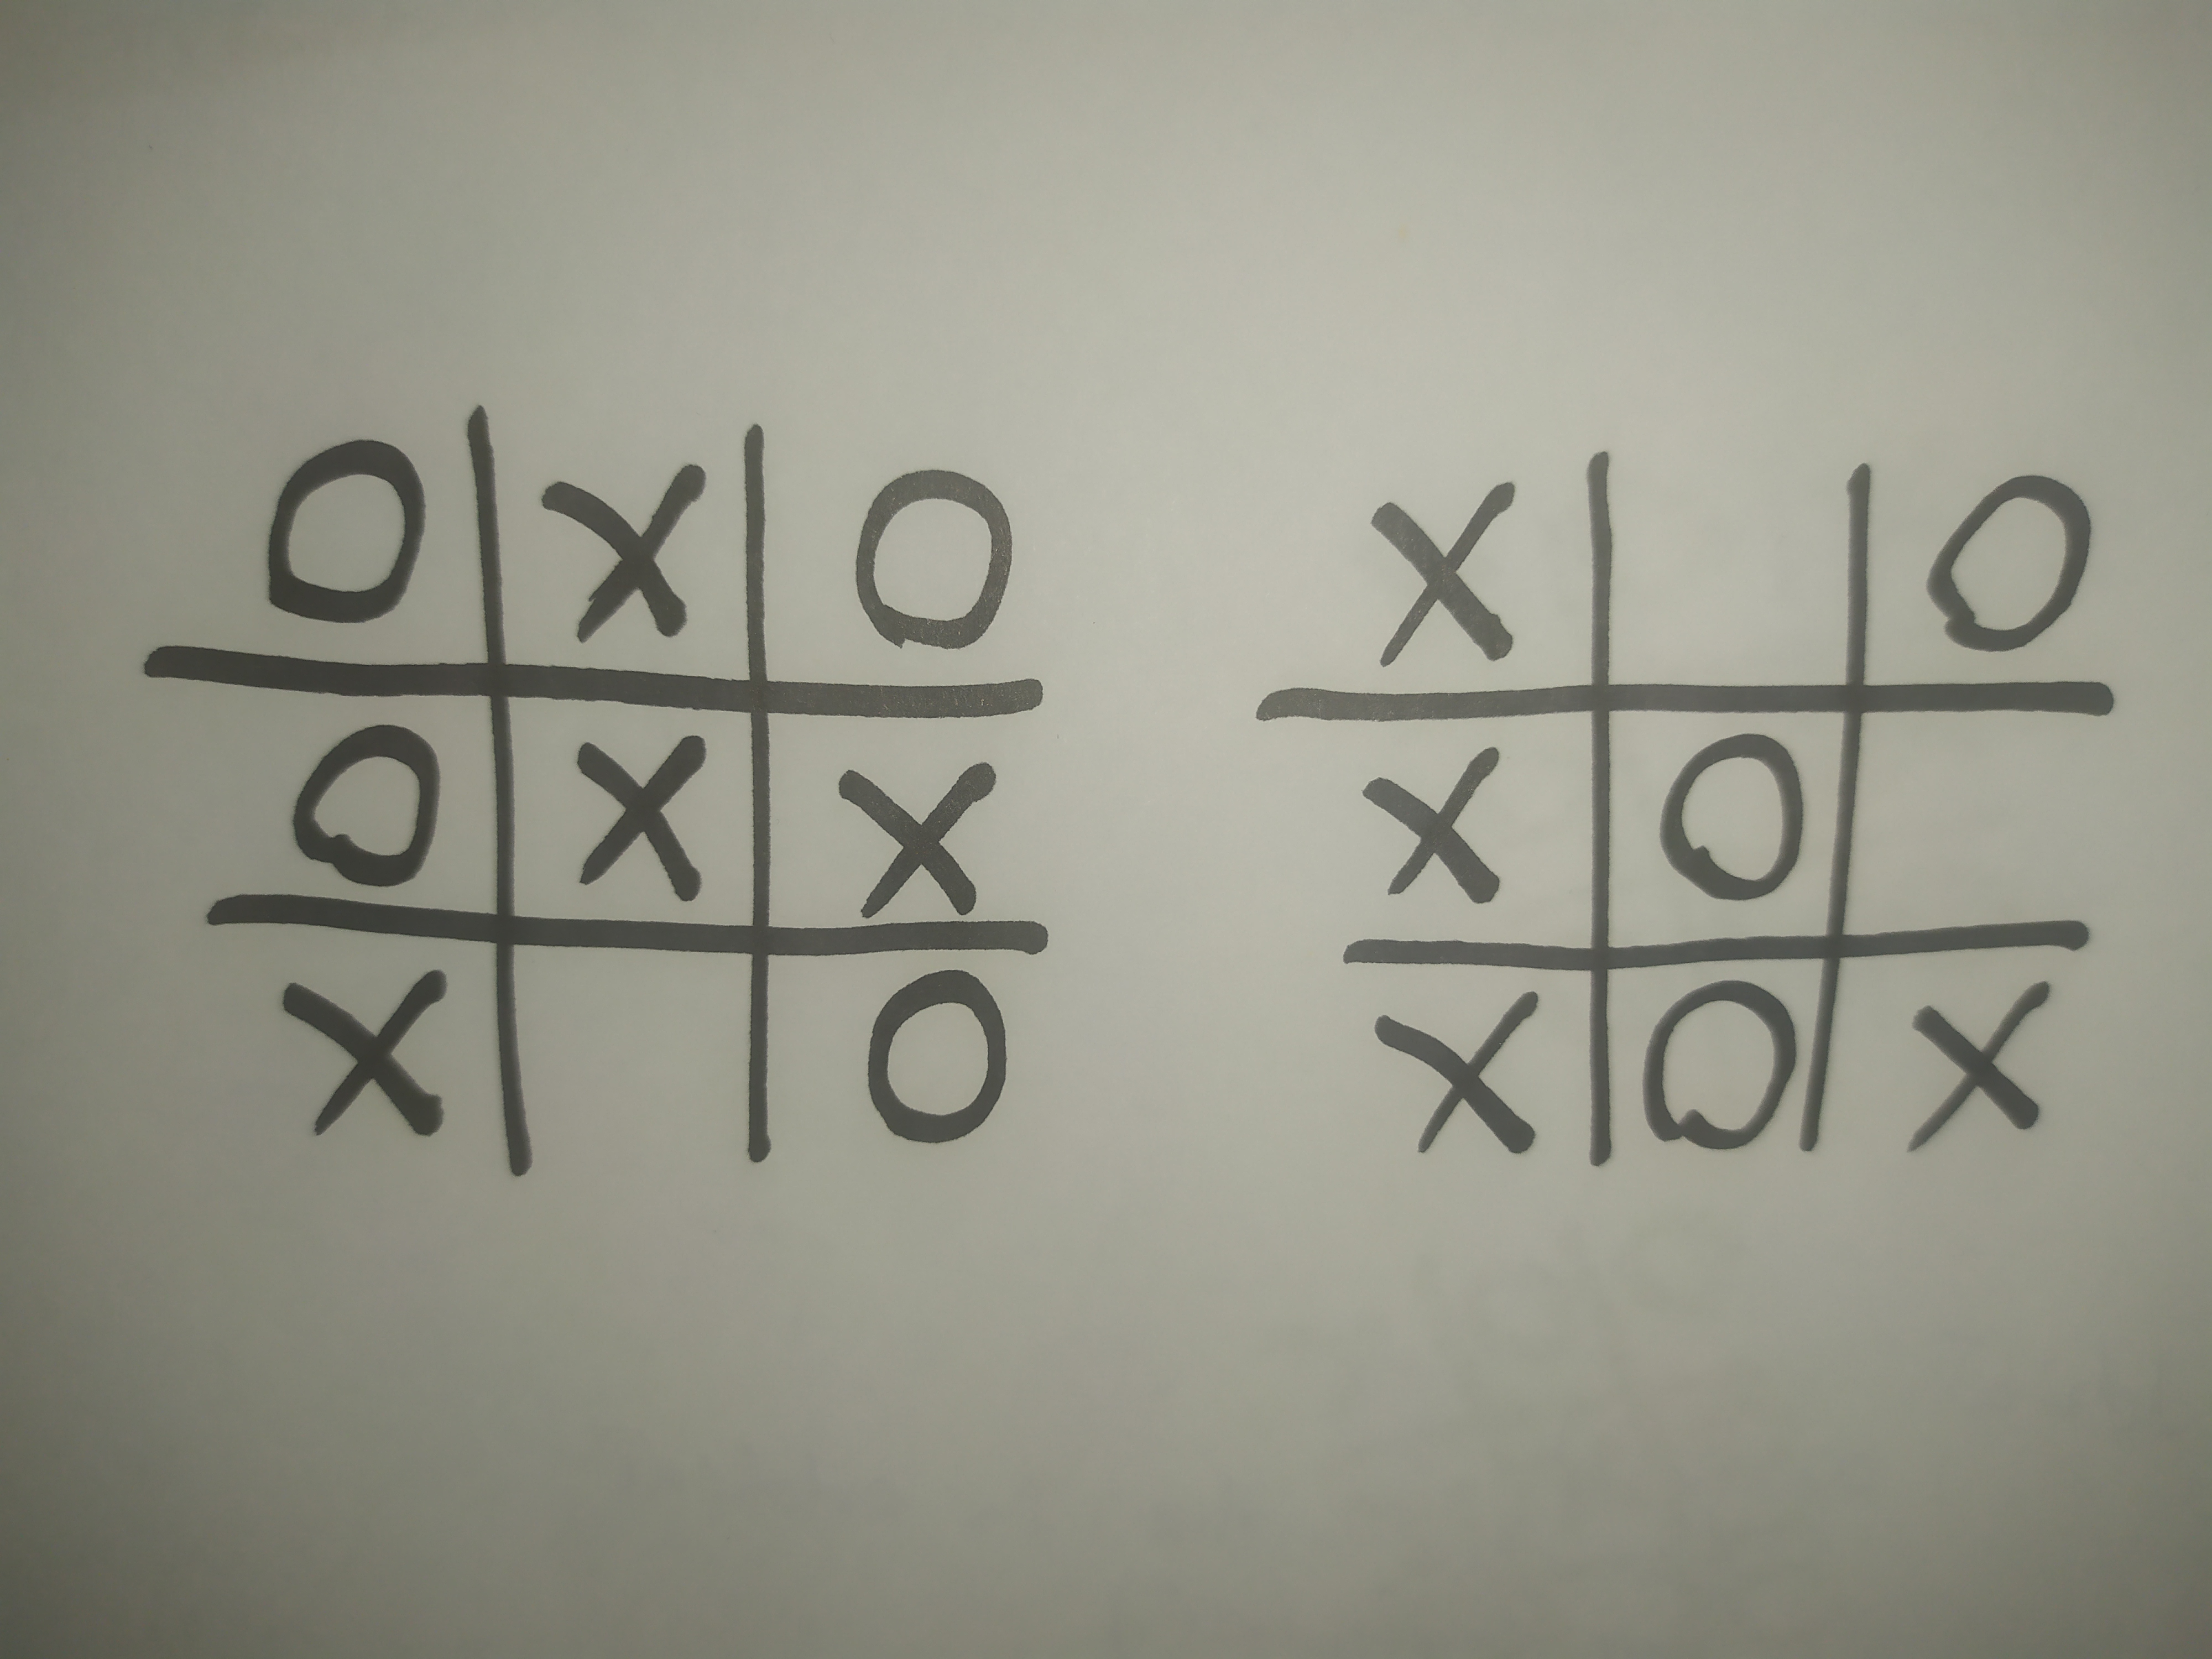 X O X
O X
O X
O X
X X O
O X O